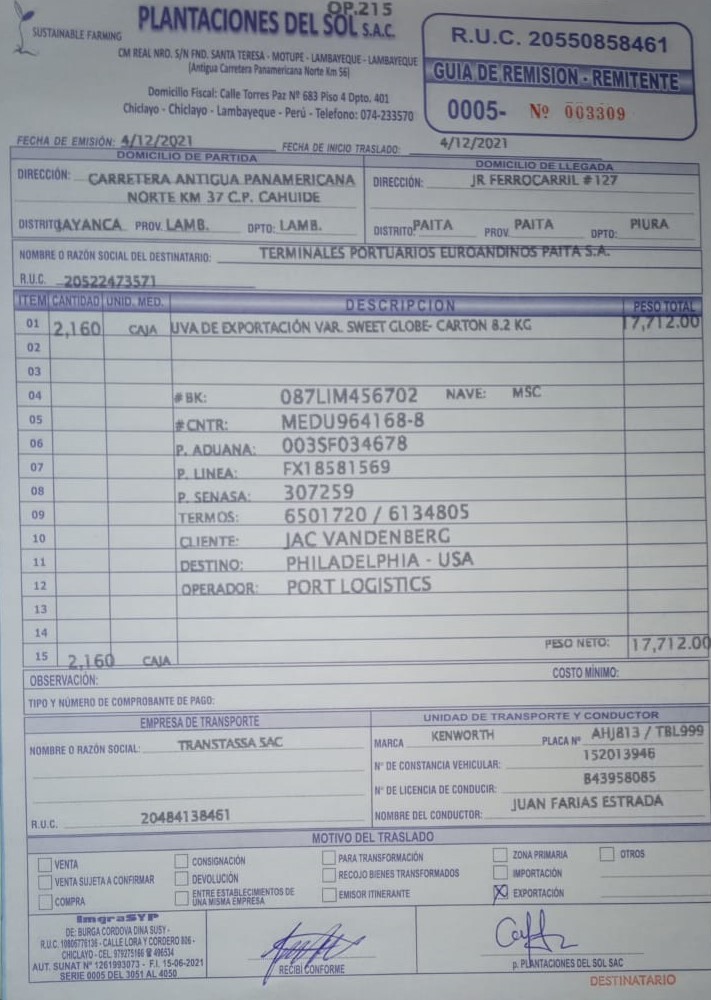 OP.215
SUSTAINABLE FARMING
PLANTACIONES DEL SOL S.A.C.
CM REAL NRO. S/N FND. SANTA TERESA - MOTUPE - LAMBAYEQUE - LAMBAYEQUE
(Antigua Carretera Panamericana Norte Km 56)
Domicilio Fiscal: Calle Torres Paz Nº 683 Piso 4 Dpto. 401
Chiclayo - Chiclayo - Lambayeque - Perú - Telefono: 074-233570
R.U.C. 20550858461
GUIA DE REMISION - REMITENTE
0005- Nº 003309
FECHA DE EMISIÓN: 4/12/2021 FECHA DE INICIO TRASLADO: 4/12/2021
DOMICILIO DE PARTIDA
DIRECCIÓN: CARRETERA ANTIGUA PANAMERICANA
NORTE KM 37 C.P. CAHUIDE
DISTRITO JAYANCA PROV. LAMB. DPTO: LAMB.
DOMICILIO DE LLEGADA
DIRECCIÓN: JR FERROCARRIL #127
DISTRITO PAITA PROV PAITA DPTO: PIURA
NOMBRE O RAZÓN SOCIAL DEL DESTINATARIO: TERMINALES PORTUARIOS EUROANDINOS PAITA S.A.
R.U.C. 20522473571
ITEM CANTIDAD UNID. MED. DESCRIPCION PESO TOTAL
01 2,160 CAJA UVA DE EXPORTACIÓN VAR. SWEET GLOBE- CARTON 8.2 KG 17,712.00
02
03
04 #BK: 087LIM456702 NAVE: MSC
05 #CNTR: MEDU964168-8
06 P. ADUANA: 003SF034678
07 P. LINEA: FX18581569
08 P. SENASA: 307259
09 TERMOS: 6501720 / 6134805
10 CLIENTE: JAC VANDENBERG
11 DESTINO: PHILADELPHIA - USA
12 OPERADOR: PORT LOGISTICS
13
14
PESO NETO: 17,712.00
15 2,160 CAJA
OBSERVACIÓN: COSTO MÍNIMO:
TIPO Y NÚMERO DE COMPROBANTE DE PAGO:
EMPRESA DE TRANSPORTE
NOMBRE O RAZÓN SOCIAL: TRANSTASSA SAC
R.U.C. 20484138461
UNIDAD DE TRANSPORTE Y CONDUCTOR
MARCA KENWORTH PLACA Nº AHJ813 / TBL999
Nº DE CONSTANCIA VEHICULAR: 152013946
Nº DE LICENCIA DE CONDUCIR: B43958085
NOMBRE DEL CONDUCTOR: JUAN FARIAS ESTRADA
MOTIVO DEL TRASLADO
VENTA CONSIGNACIÓN PARA TRANSFORMACIÓN ZONA PRIMARIA OTROS
VENTA SUJETA A CONFIRMAR DEVOLUCIÓN RECOJO BIENES TRANSFORMADOS IMPORTACIÓN
COMPRA ENTRE ESTABLECIMIENTOS DE UNA MISMA EMPRESA EMISOR ITINERANTE X EXPORTACIÓN
ImgraSYP
DE: BURGA CORDOVA DINA SUSY -
R.U.C. 10806776136 - CALLE LORA Y CORDERO 826 -
CHICLAYO - CEL. 979275166 496534
AUT. SUNAT Nº 1261993073 - F.I. 15-06-2021
SERIE 0005 DEL 3051 AL 4050
RECIBÍ CONFORME
p. PLANTACIONES DEL SOL SAC
DESTINATARIO